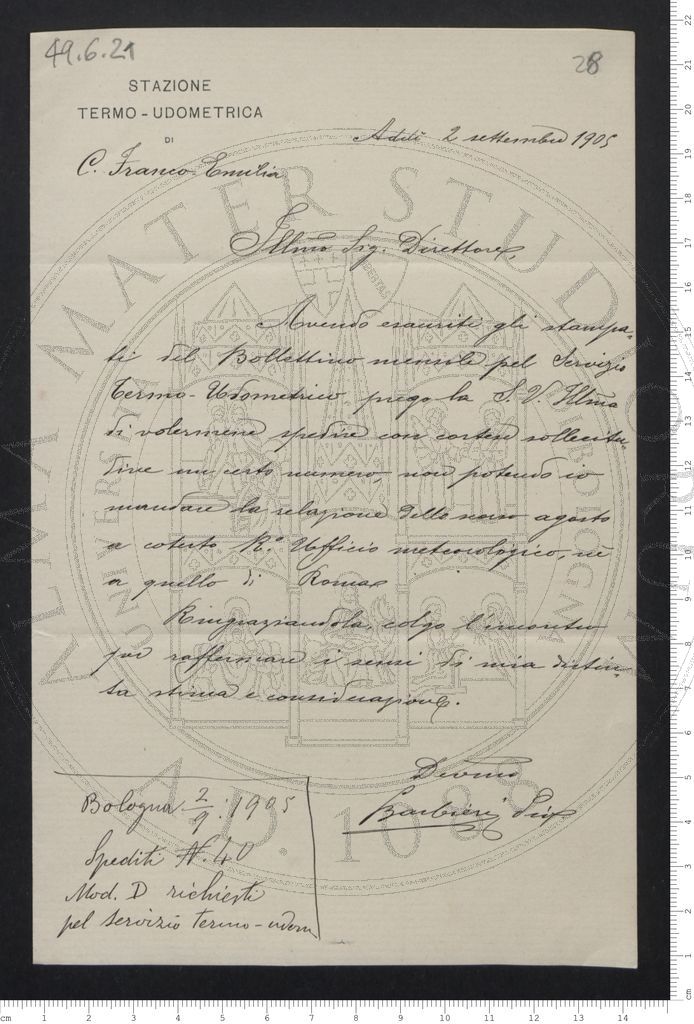 49.6.21
28
STAZIONE
TERMO-UDOMETRICA
DI
C. Franco Emilia
Addì 2 settembre 1905
Illmo Sig. Direttore,
Avendo esauriti gli stampa-
ti del Bollettino mensile pel Servizio
Termo-Udometrico, prego la S. V. Illma
di volermene spedire con cortese sollecitu-
dine un certo numero, non potendo io
mandare la relazione dello scorso agosto
a cotesto R.o Ufficio meteorologico, nè
a quello di Roma.
Ringraziandola, colgo l'incontro
per raffermare i sensi di mia distin-
ta stima e considerazione.
Devmo
Barbieri Pio
Bologna 2/9. 1905
Spediti N. 40
Mod. D richiesti
pel servizio termo-udom
ALMA MATER STUDIORUM
A.D. 1088
cm 1 2 3 4 5 6 7 8 9 10 11 12 13 14
cm 1 2 3 4 5 6 7 8 9 10 11 12 13 14 15 16 17 18 19 20 21 22